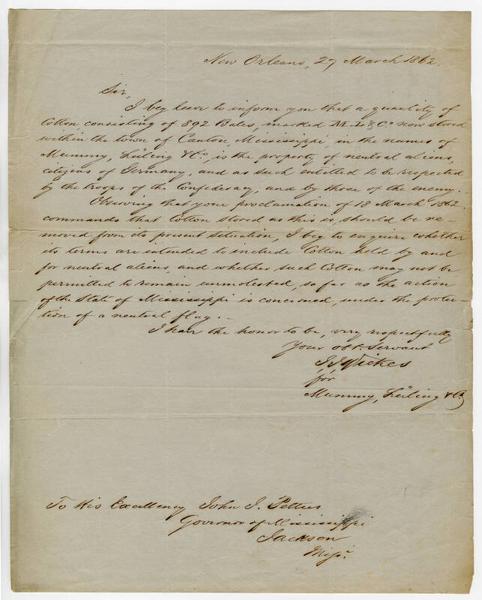 New Orleans, 27 March 1862.
Sir,
I beg leave to inform you that a quantity of
Cotton consisting of 892 Bales, marked M. L & Co now stored
within the town of Canton, Mississippi, in the names of
Mummy, Luling & Co, is the property of neutral aliens,
citizens of Germany, and as such entitled to be respected
by the troops of the Confederacy, and by those of the enemy.
Observing that your proclamation of 18 March 1862
commands that Cotton stored as this is, should be re-
moved from its present situation, I beg to enquire whether
its terms are intended to include Cotton held by and
for neutral aliens, and whether such Cotton may not be
permitted to remain unmolested, so far as the action
of the State of Mississippi is concerned, under the protec-
tion of a neutral flag.
I have the honor to be, very respectfully
Your obt. Servant
Wickes
for
Mummy, Luling & Co
To His Excellency John J. Pettus
Governor of Mississippi
Jackson
Missi.